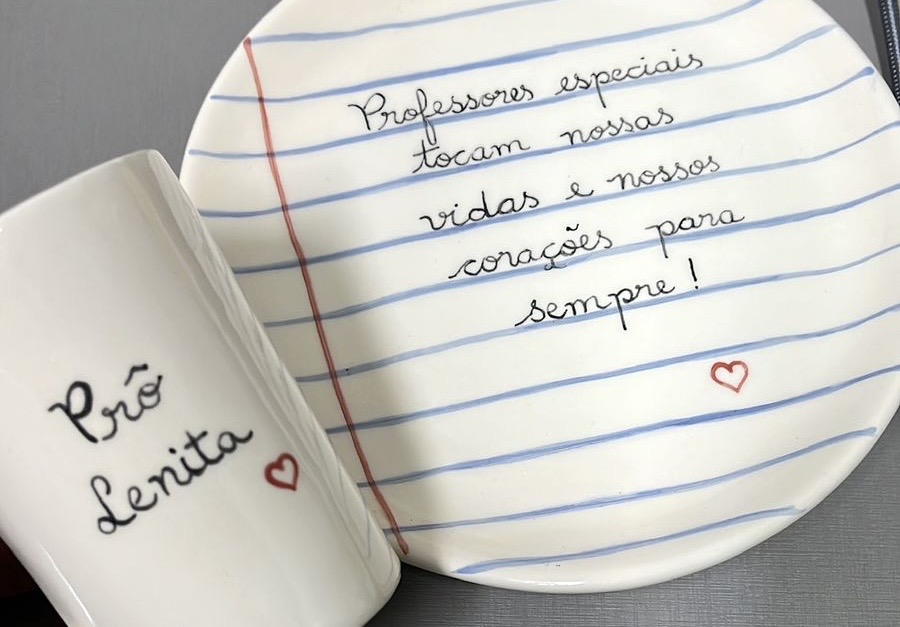 Professores especiais
tocam nossas
vidas e nossos
corações para
sempre!
Prô
Lenita